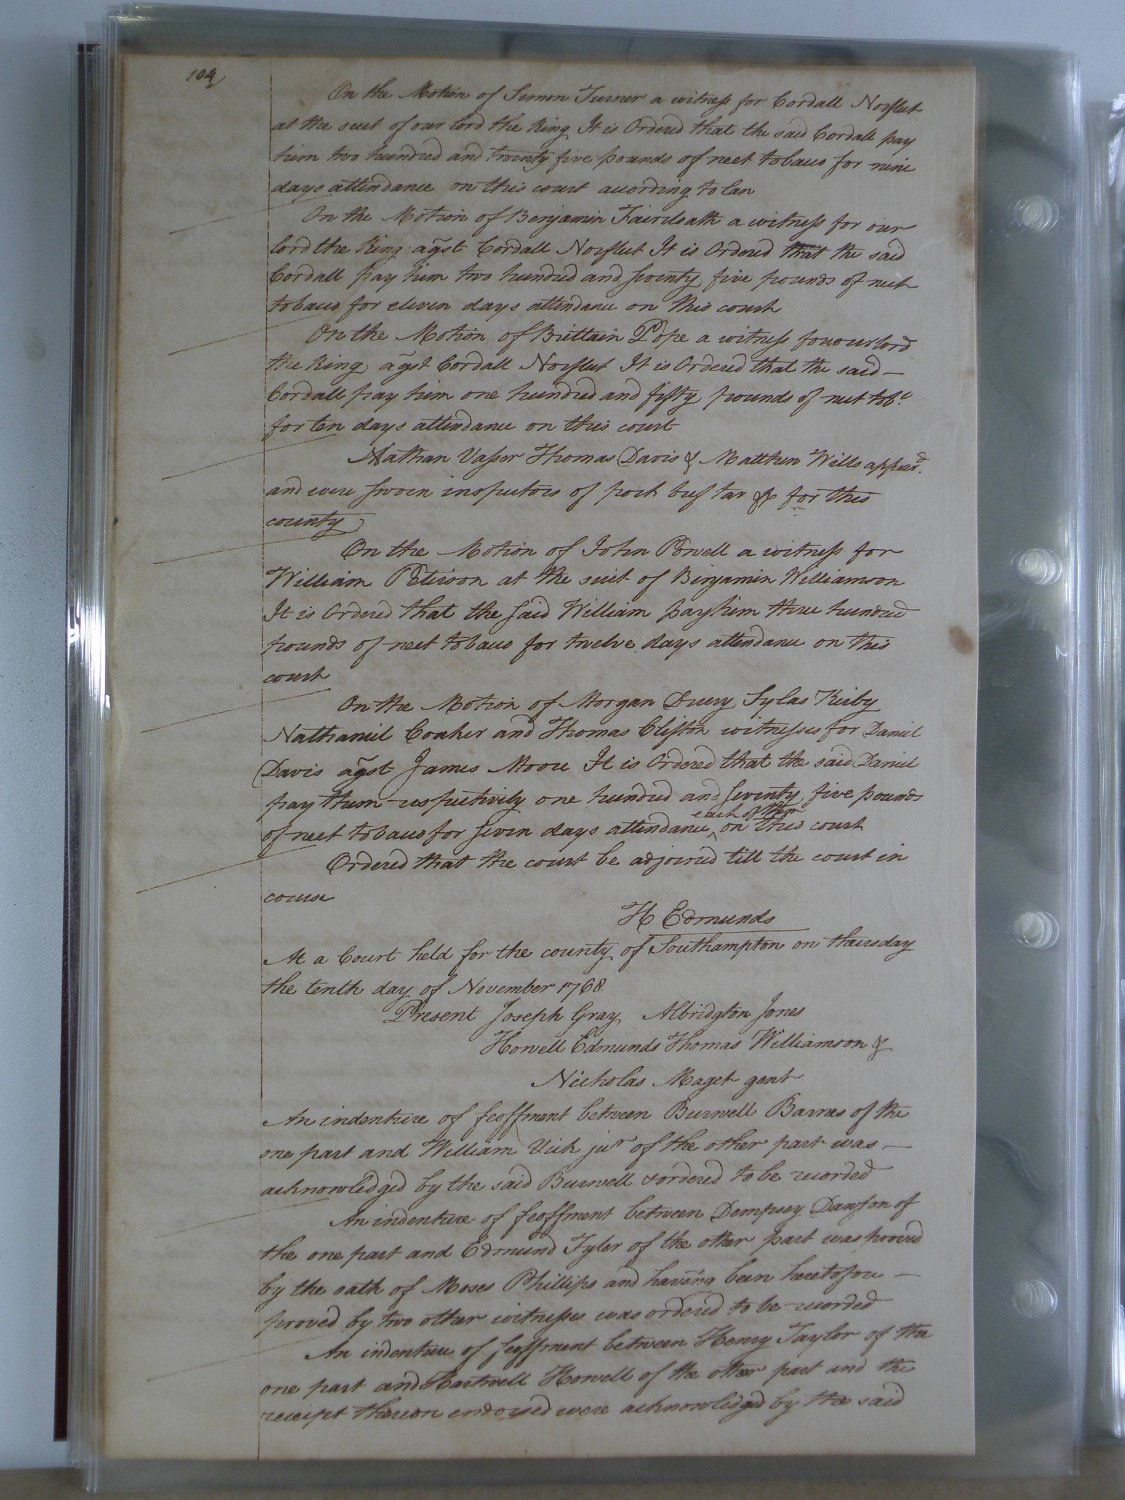 104
On the Motion of Simon Turner a witness for Cordall Norfleet
at the suit of our lord the King It is Ordered that the said Cordall pay
him two hundred and twenty five pounds of neet tobacco for nine
days attendance on this court according to law
On the Motion of Benjamin Faircloath a witness for our
lord the King agst Cordall Norfleet It is Ordered that the said
Cordall pay him two hundred and seventy five pounds of neet
tobacco for eleven days attendance on this court
On the Motion of Brittain Pope a witness for our lord
the King agst Cordall Norfleet It is Ordered that the said
Cordall pay him one hundred and fifty pounds of neet tobo
for ten days attendance on this court
Nathan Vasser Thomas Davis & Matthew Wills appeard
and were sworn inspectors of pork beef tar &c for this
county
On the Motion of John Powell a witness for
William Peterson at the suit of Benjamin Williamson
It is Ordered that the said William pay him three hundred
pounds of neet tobacco for twelve days attendance on this
court
On the Motion of Morgan Drury Sylas Kirby
Nathaniel Coaker and Thomas Clifton witnesses for Daniel
Davis agst James Moore It is Ordered that the said Daniel
pay them respectively one hundred and seventy five pounds
of neet tobacco for seven days attendance each of them on this court
Ordered that the court be adjorned till the court in
course
H Edmunds
At a Court held for the county of Southampton on thursday
the tenth day of November 1768
Present Joseph Gray Albridgton Jones
Howell Edmunds Thomas Williamson &
Nicholas Maget gent
An indenture of feoffment between Burwell Barnes of the
one part and William Vick junr of the other part was
acknowledged by the said Burwell & ordered to be recorded
An indenture of feoffment between Dempsey Dawson of
the one part and Edmund Tyler of the other part was proved
by the oath of Moses Phillips and having been heretofore
proved by two other witnesses was ordered to be recorded
An indenture of feoffment between Henry Taylor of the
one part and Hartwell Howell of the other part and the
receipt thereon endorsed were acknowledged by the said